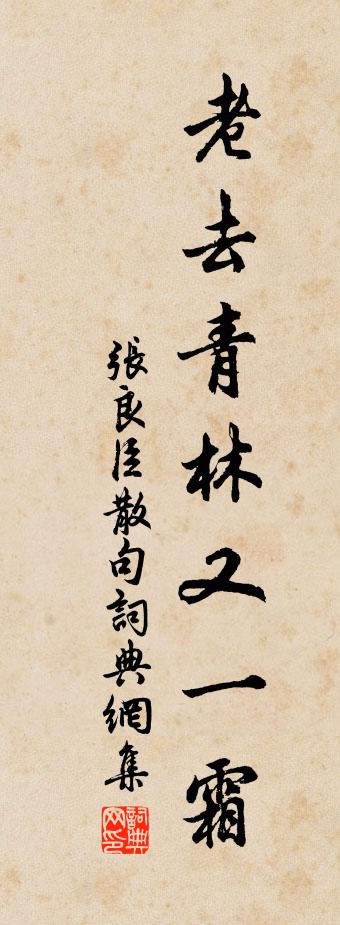 老去青林又一霜
張良臣散句詞典網集
詞典网印